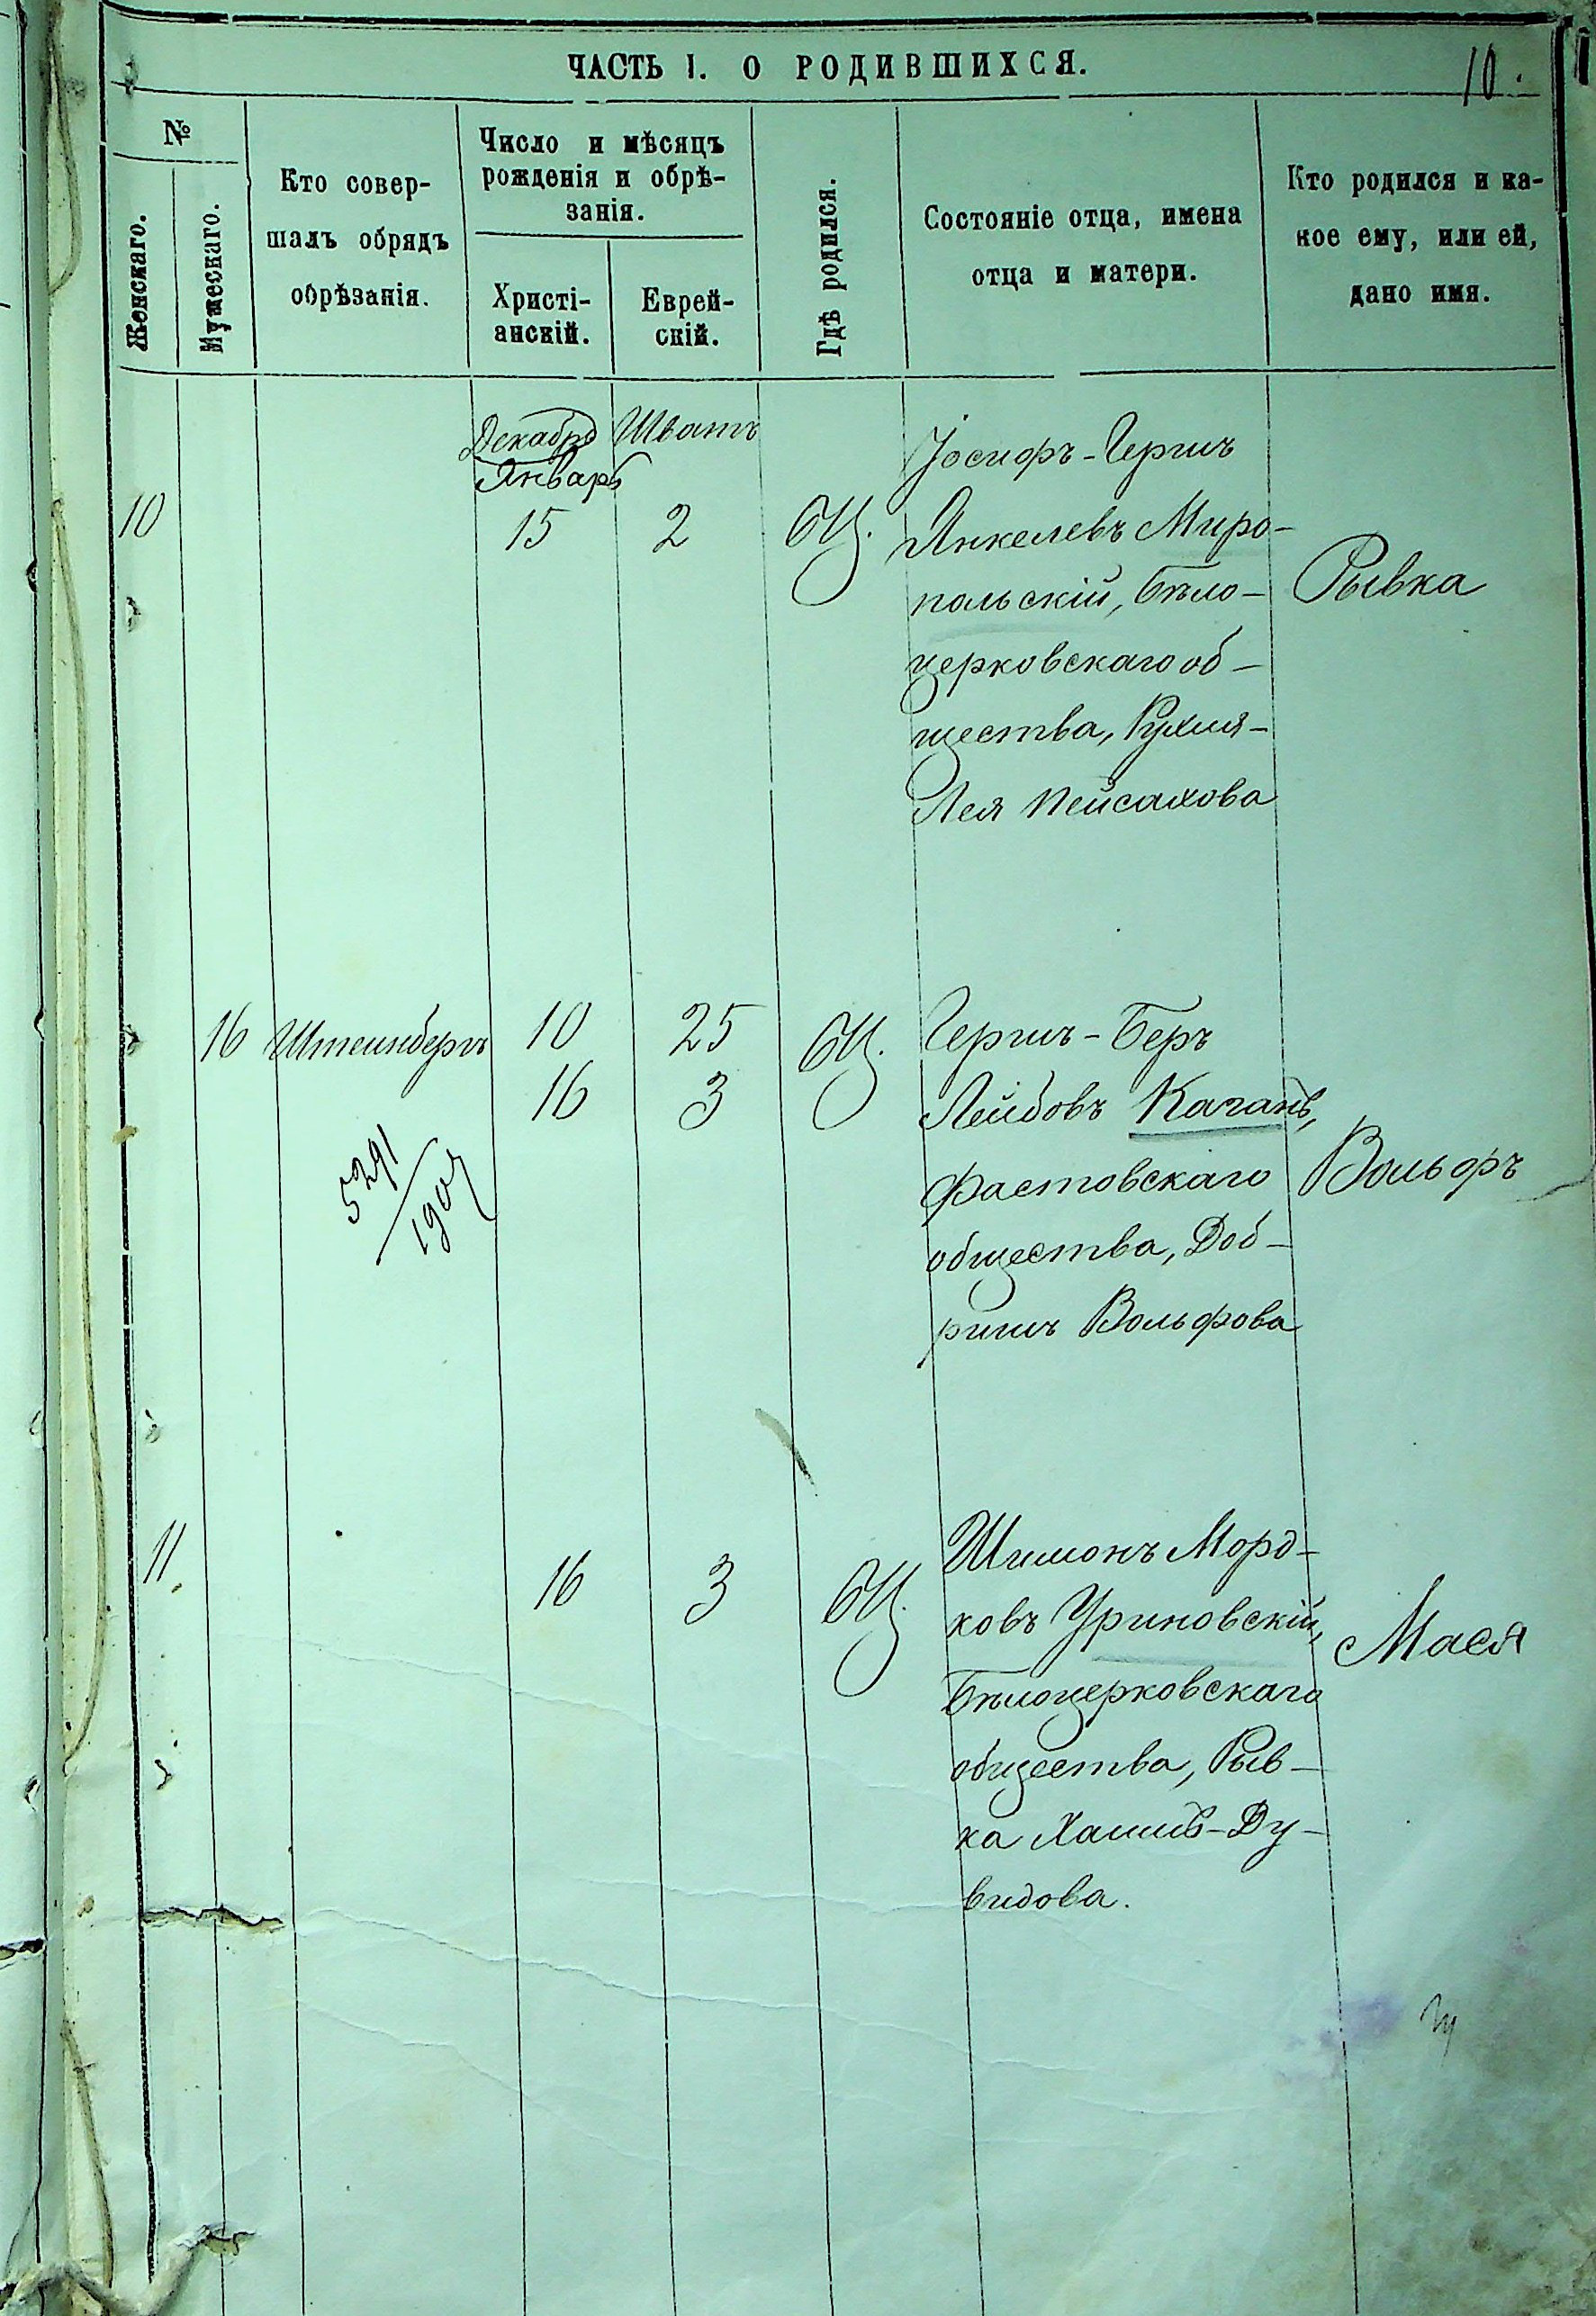 ЧАСТЬ I. О РОДИВШИХСЯ.
10.
№
Женскаго.
Мужескаго.
Кто совер-
шалъ обрядъ
обрѣзанія.
Число и мѣсяцъ
рожденія и обрѣ-
занія.
Христі-
анскій.
Еврей-
скій.
Гдѣ родился.
Состояніе отца, имена
отца и матери.
Кто родился и ка-
кое ему, или ей,
дано имя.
Декабрь Шватъ
Январь
10 15 2 БЦ.
Іосифъ-Гершъ
Янкелевъ Миро-
польскій, Бѣло-
церковскаго об-
щества, Рухля-
Лея Пейсахова
Рывка
16 Штейнбергъ 10 25 БЦ.
16 3
5291
Гершъ-Беръ
Лейбовъ Каганъ,
Фастовскаго
общества, Доб-
ришъ Вольфова
Вольфъ
11. 16 3 БЦ.
Шимонъ Морд-
ковъ Уриновскій,
Бѣлоцерковскаго
общества, Рыв-
ка Хаимъ-Ду-
видова.
Мася